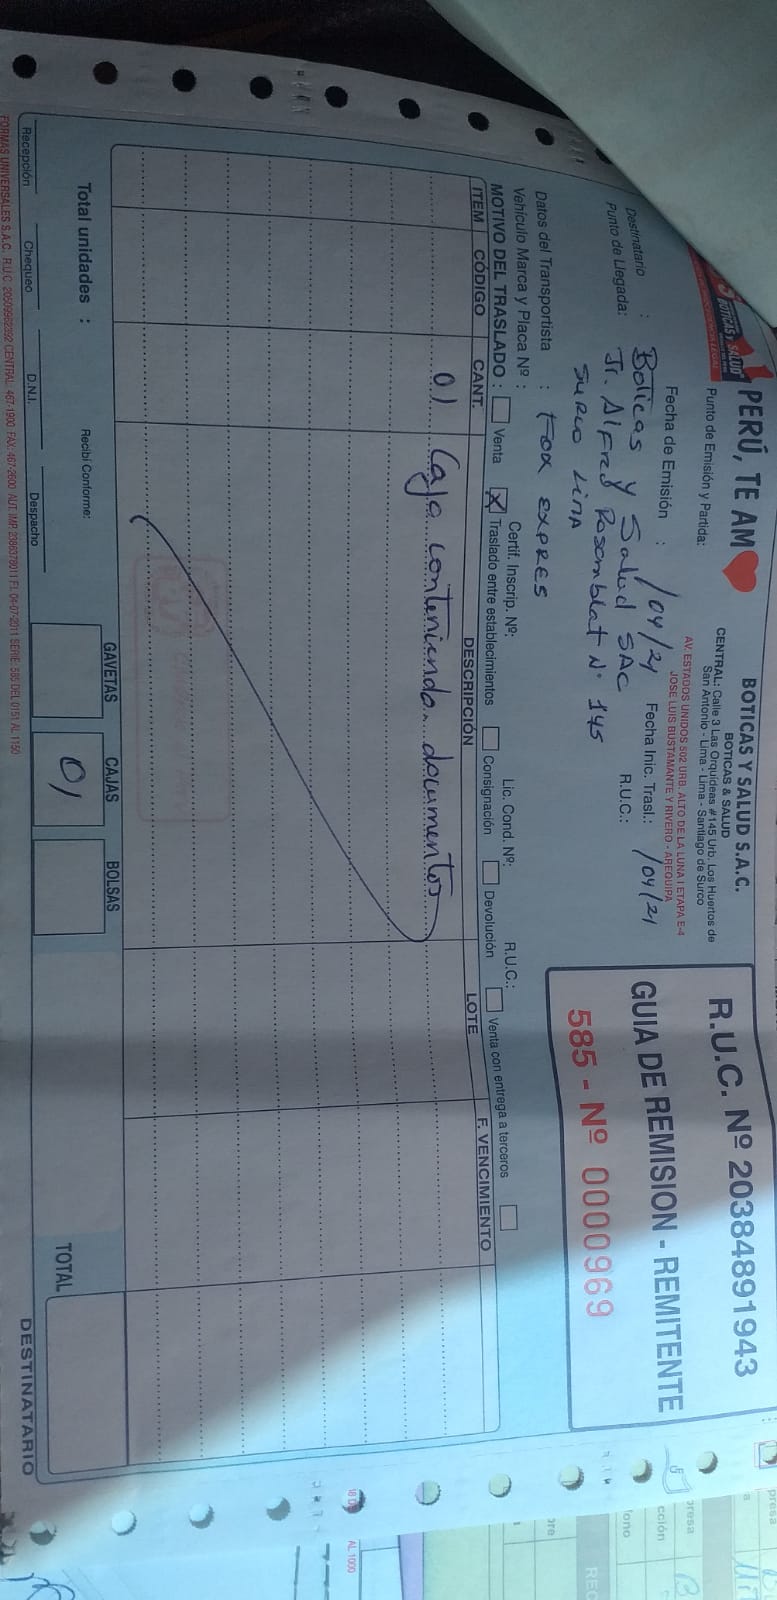 PERÚ, TE AM
BOTICAS Y SALUD
BOTICAS Y SALUD S.A.C.
BOTICAS & SALUD
CENTRAL: Calle 3 Las Orquídeas #145 Urb. Los Huertos de
San Antonio - Lima - Lima - Santiago de Surco
Punto de Emisión y Partida:
AV. ESTADOS UNIDOS 502 URB. ALTO DE LA LUNA I ETAPA E-4
JOSE LUIS BUSTAMANTE Y RIVERO - AREQUIPA
R.U.C. Nº 20384891943
GUIA DE REMISION - REMITENTE
585 - Nº 0000969
Fecha de Emisión : /04/21 Fecha Inic. Trasl.: /04/21
Destinatario : Boticas y Salud SAC R.U.C.:
Punto de Llegada: Jr. Alfred Rosemblat N° 145
SURCO LIMA
Datos del Transportista : FOX EXPRES R.U.C.:
Vehículo Marca y Placa Nº : Certif. Inscrip. Nº: Lic. Cond. Nº:
MOTIVO DEL TRASLADO : Venta X Traslado entre establecimientos Consignación Devolución Venta con entrega a terceros
ITEM CÓDIGO CANT. DESCRIPCIÓN LOTE F. VENCIMIENTO
01 Caja conteniendo documentos
GAVETAS CAJAS BOLSAS
Total unidades : 01 TOTAL
Recibí Conforme:
Recepción Chequeo D.N.I. Despacho
DESTINATARIO
FORMAS UNIVERSALES S.A.C. R.U.C. 20509982392 CENTRAL: 467-1900 FAX: 467-2600 AUT. IMP. 2386378011 F.I. 04-07-2011 SERIE: 585 DEL 0151 AL 1150
AL 1000